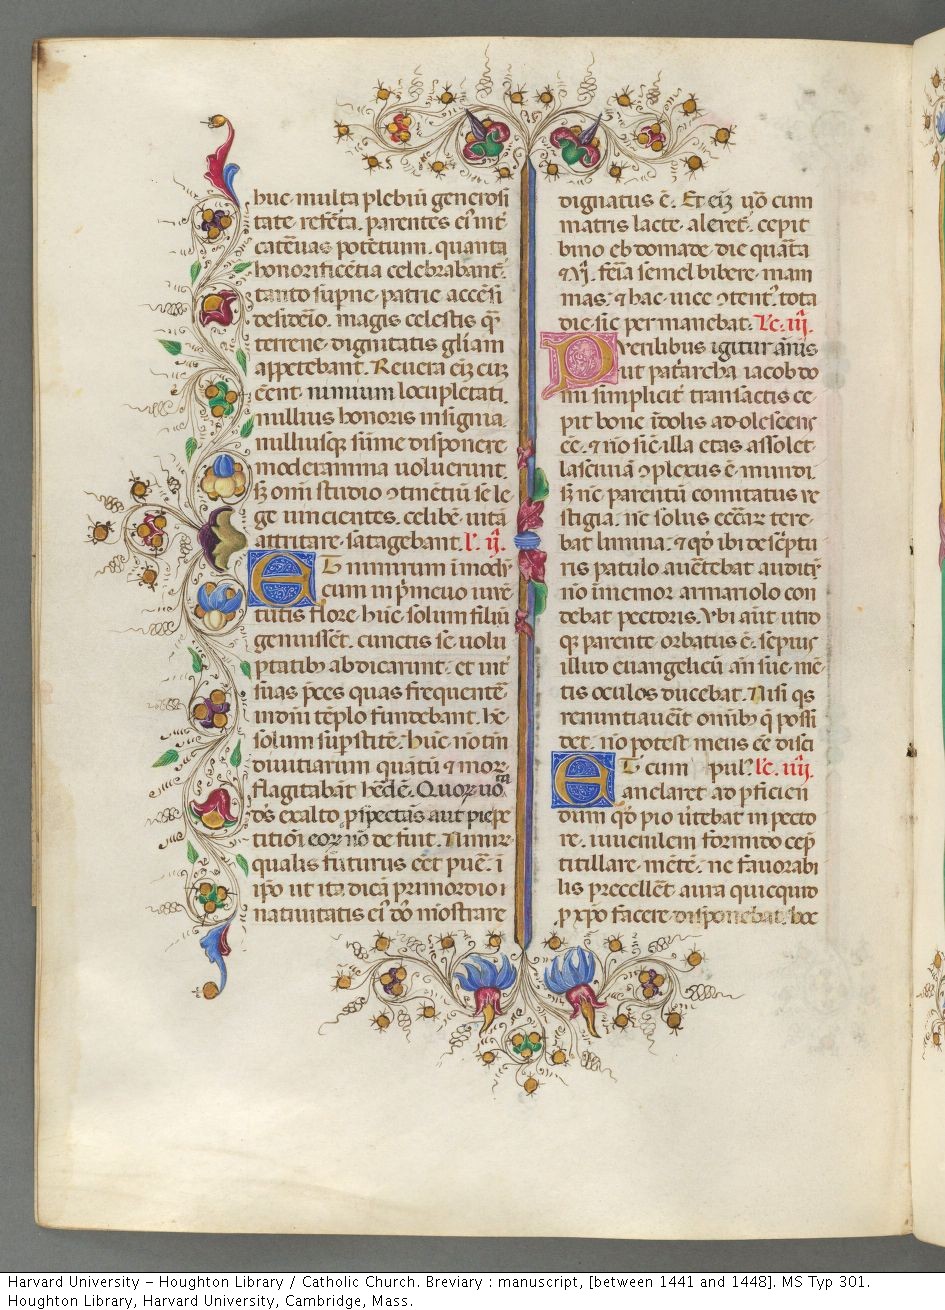 huc. multa plebiũ generosi
tate. refẽta. parentes ei᷒ int᷒
catẽuas potẽtum. quanta
honorificẽtia celebrabant᷒
tanto supne. patrie accẽsi
desidẽio. magis celestis q̃
terrene. dignitatis gl̃iam
appetebant. Reuera ei᷒ cu᷒
cẽnt. nimium locupletati.
nullius honoris insignia.
nulliusq; sũme disponere.
moderamina uoluerunt.
s; omi studio ɔtinẽtiũ se le
ge uincientes. celibẽ uitã
attritare. satagebant. l᷒. ij᷒.
ET nimirum
cum in p̃meuo iuuẽ
tutis flore. hũc solum filiũ
genuissẽt. cunctis se. uolu
ptatib; abdicarunt. et int᷒
suas p̃ces quas frequentẽ
in dñi tẽplo fundebant. hẽ
solum supstitẽ. hũc nõ tm̃
diuitiarum quãtũ
flagitabãt hẽdẽ. Quoꝝ uo
d᷒s exalto. aut pie pe
titiõi eoꝝ nõ defuit. Nimiꝝ
qualis futurus eẽt puẽ. i
ip̃o ut ita dicã primordio i
natiuitatis ei᷒ d᷒o mõstrare
dignatus ẽ. Et ei᷒ u᷒o cum
matris lacte. aleret᷒. cepit
bino ebdomade. die quãta
⁊ ui᷒. fẽia semel bibere. mam
mas. ⁊ hac. uice ɔtent᷒. tota
die. sic permanebat. Le. iij.
Puerilibus igitur ãnis
ut pat᷒archa iacob do
mi simplicit᷒ transactis ce
pit bone ĩdolis adolescens
eẽ. ⁊ nõ sic illa etas assolet.
lasciuiã ɔplexus ẽ mundi
s; nẽ parentũ comitatus ue
stigia. nẽ solus ecc̃aꝝ tere
bat limina. ⁊ q᷒ ibi descp̃tu
ris patulo auẽtebat auditu᷒
nõ ĩmemor armariolo con
debat pectoris. Vbi aũt utro
q; parente. orbatus ẽ. sepius
illud euangelicũ añ sue. mẽ
tis oculos ducebat. Nisi q᷒s
renuntiauẽit omib; q̃ possi
det. nõ potest meus eẽ disci
pul᷒. Le. iiij.
ET cum
anclaret ad p̃ficien
dum q᷒ pio uẽtebat in pecto
re. iuuenilem formido cep᷒
titillare. mẽtẽ. ne fauorabi
lis precellẽt aura quicquid
p xp̃o facere. disponebat. hoc
Harvard University – Houghton Library / Catholic Church. Breviary : manuscript, [between 1441 and 1448]. MS Typ 301.
Houghton Library, Harvard University, Cambridge, Mass.